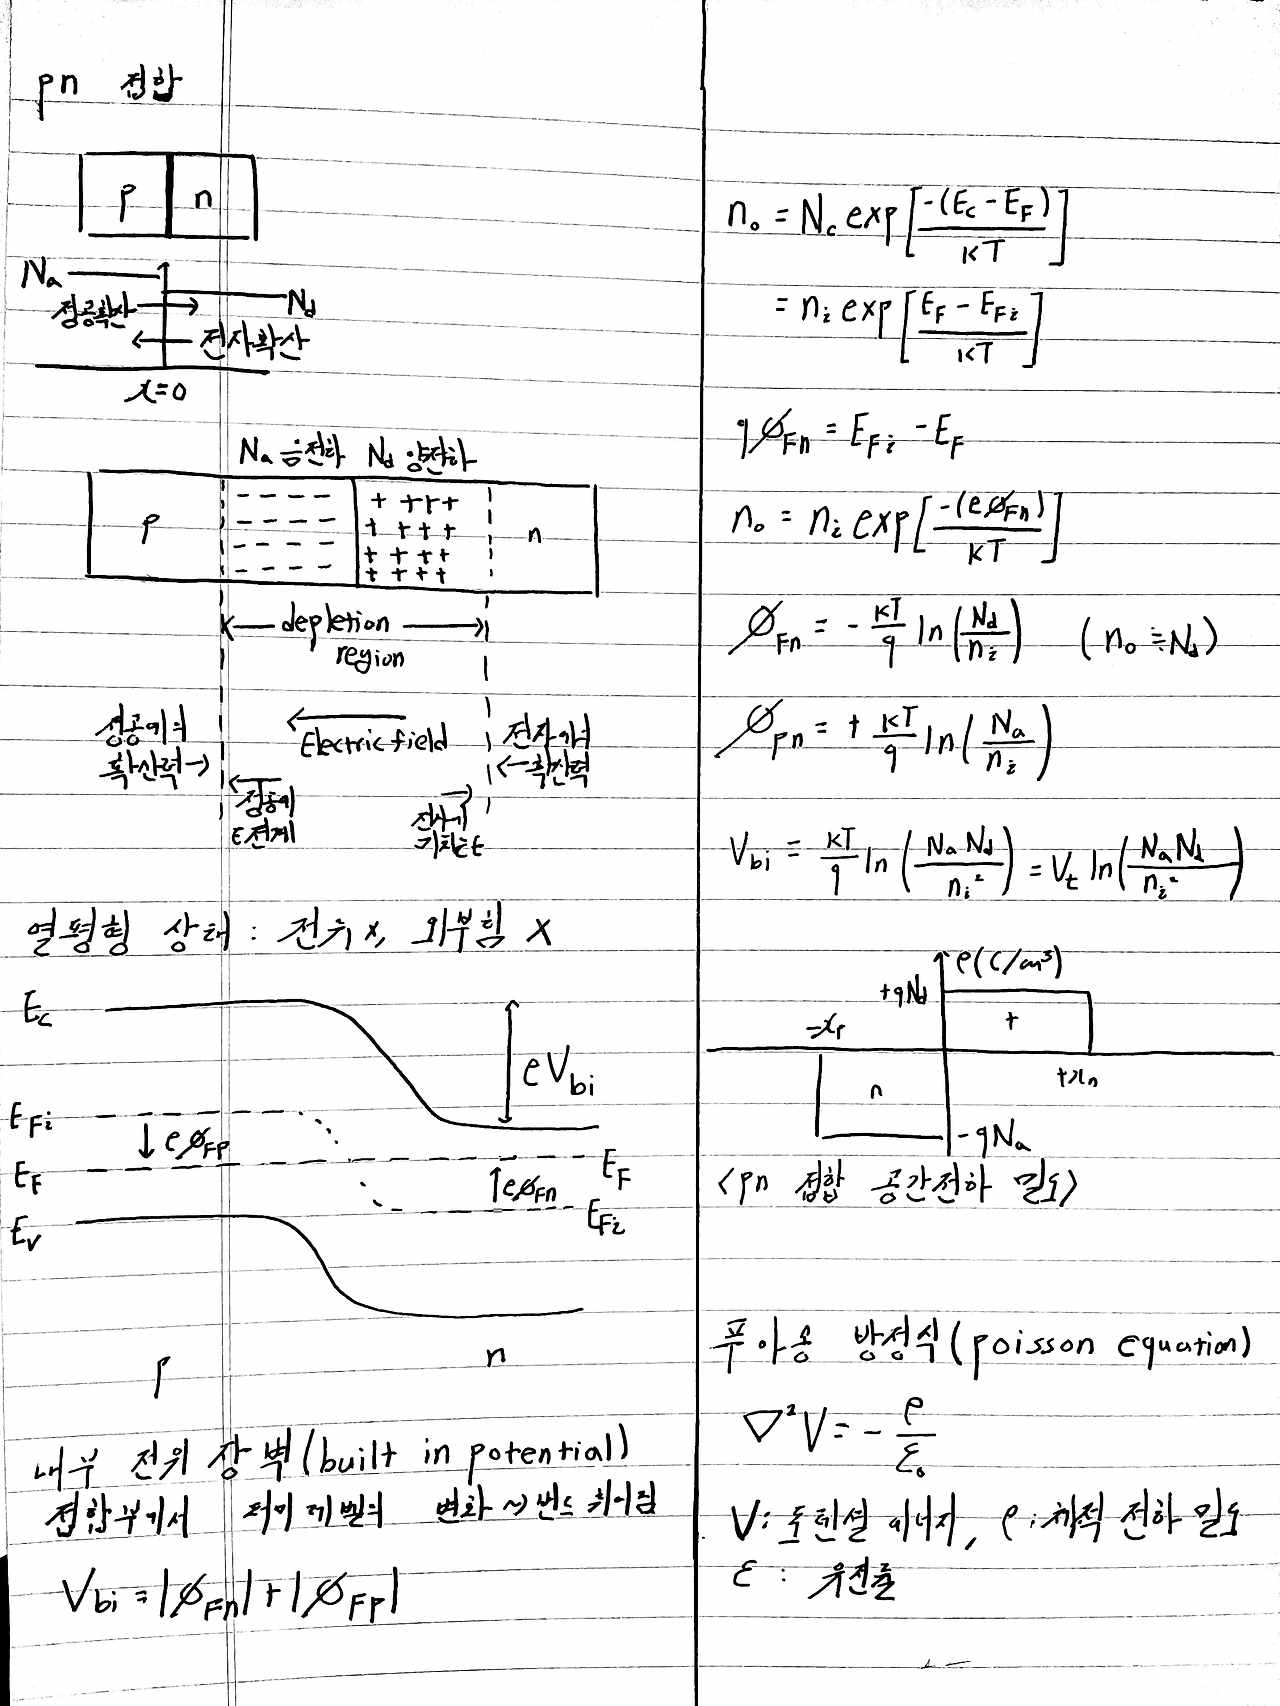 pn 접합
p n
Na
정공확산
Nd
전자확산
x=0
Na 음전하 Nd 양전하
p - - - - + + + + n
- - - - + + + +
- - - - + + + +
- - - - + + + +
depletion
region
Electric field
확산력
확산력
E전계
열평형 상태 : 전류 x, 외부힘 x
Ec
eVbi
EFi
eφFp
EF EF
eφFn
EFi
Ev
p n
내부 전위 장벽(built in potential)
접합부에서 페미 레벨의 변화 → 밴드 휘어짐
Vbi = |φFn| + |φFp|
n₀ = Nc exp[-(Ec - EF)/KT]
= ni exp[(EF - EFi)/KT]
qφFn = EFi - EF
n₀ = ni exp[-(eφFn)/KT]
φFn = - KT/q ln(Nd/ni) (n₀ ≡ Nd)
φpn = + KT/q ln(Na/ni)
Vbi = KT/q ln(Na Nd/ni²) = Vt ln(Na Nd/ni²)
ρ(C/cm³)
+qNd
+
-xp
+xn
n
-qNa
<pn 접합 공간전하 밀도>
푸아송 방정식(poisson equation)
∇²V = - ρ/ε₀
V : 포텐셜 에너지, ρ : 체적 전하 밀도
ε : 유전률